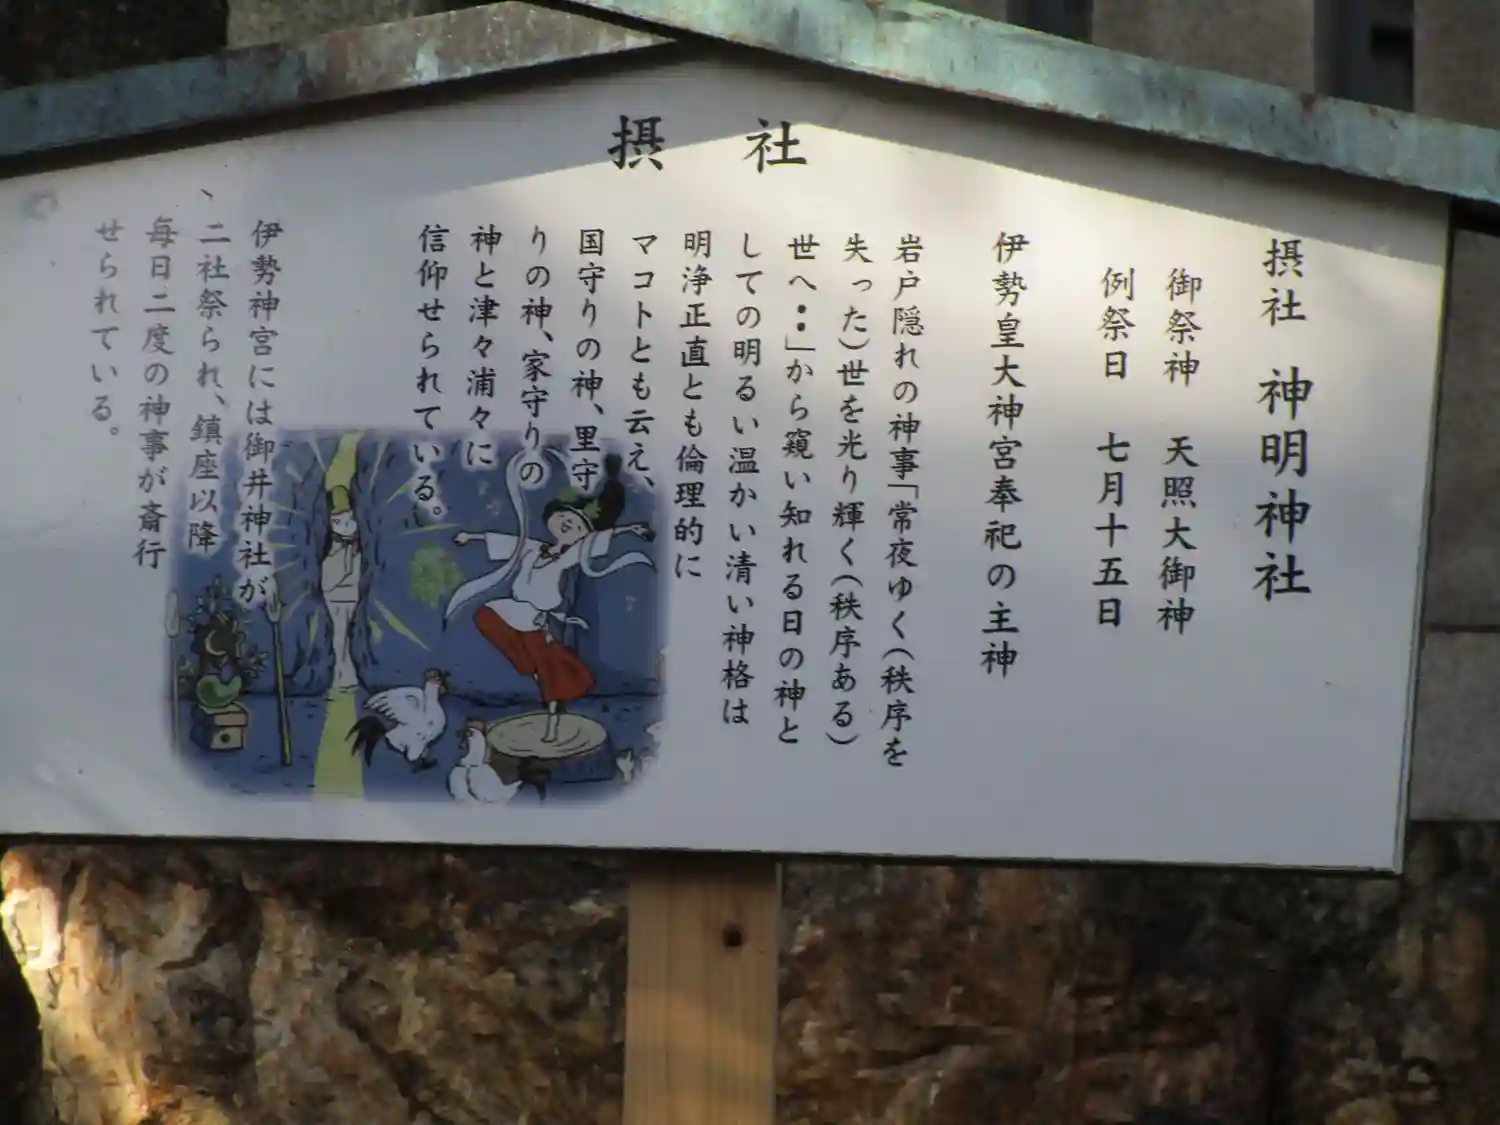 摂社
摂社 神明神社
御祭神 天照大御神
例祭日 七月十五日
伊勢皇大神宮奉祀の主神
岩戸隠れの神事「常夜ゆく(秩序を
失った)世を光り輝く(秩序ある)
世へ‥」から窺い知れる日の神と
しての明るい温かい清い神格は
明浄正直とも倫理的に
マコトとも云え、
国守りの神、里守
りの神、家守りの
神と津々浦々に
信仰せられている。
伊勢神宮には御井神社が
二社祭られ、鎮座以降、
毎日二度の神事が斎行
せられている。